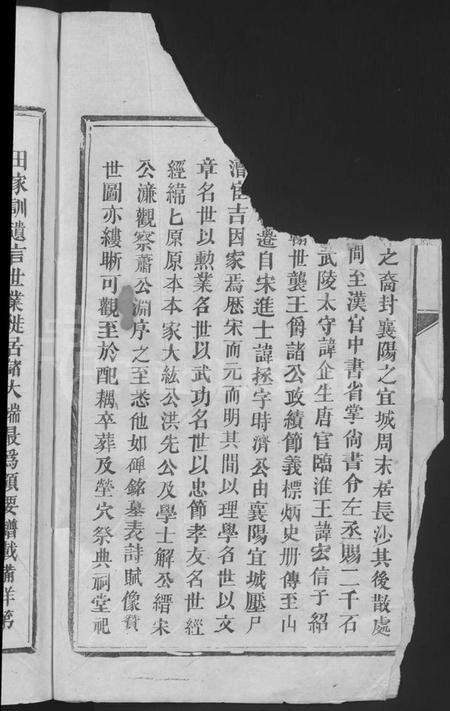 之裔封襄陽之宜城周末居長沙其後散處
間至漢官中書省掌尚書令左丞賜二千石
武陵太守諱企生唐官臨淮王諱宏信于紹
世襲王爵諸公政績節義標炳史册傳至山
遷自宋進士諱拯字時濟公由襄陽宜城壓尸
宦吉因家焉歷宋而元而明其間以理學名世以文
章名世以勲業名世以武功名世以忠節孝友名世經
經緯匕原原本本家大紘公洪先公及學士解公縉宋
公濂觀察蕭公淵序之至悉他如碑銘墓表詩賦像贊
世圖亦縷晰可觀至於配耦卒葬及塋穴祭典祠堂祀
田家訓遺言世業徙居諸大端最為須要譜或備詳第